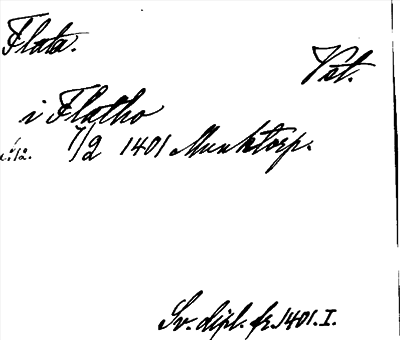 Flata.
Vst.
i Flatho
7/2 1401 Munktorp.
Sv. dipl. fr. 1401. I.